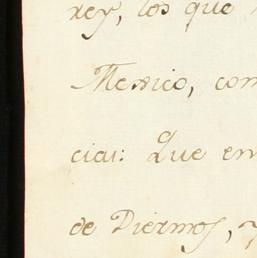 rey, los que
Mexico, com
cias: Que en
de Diezmos, y